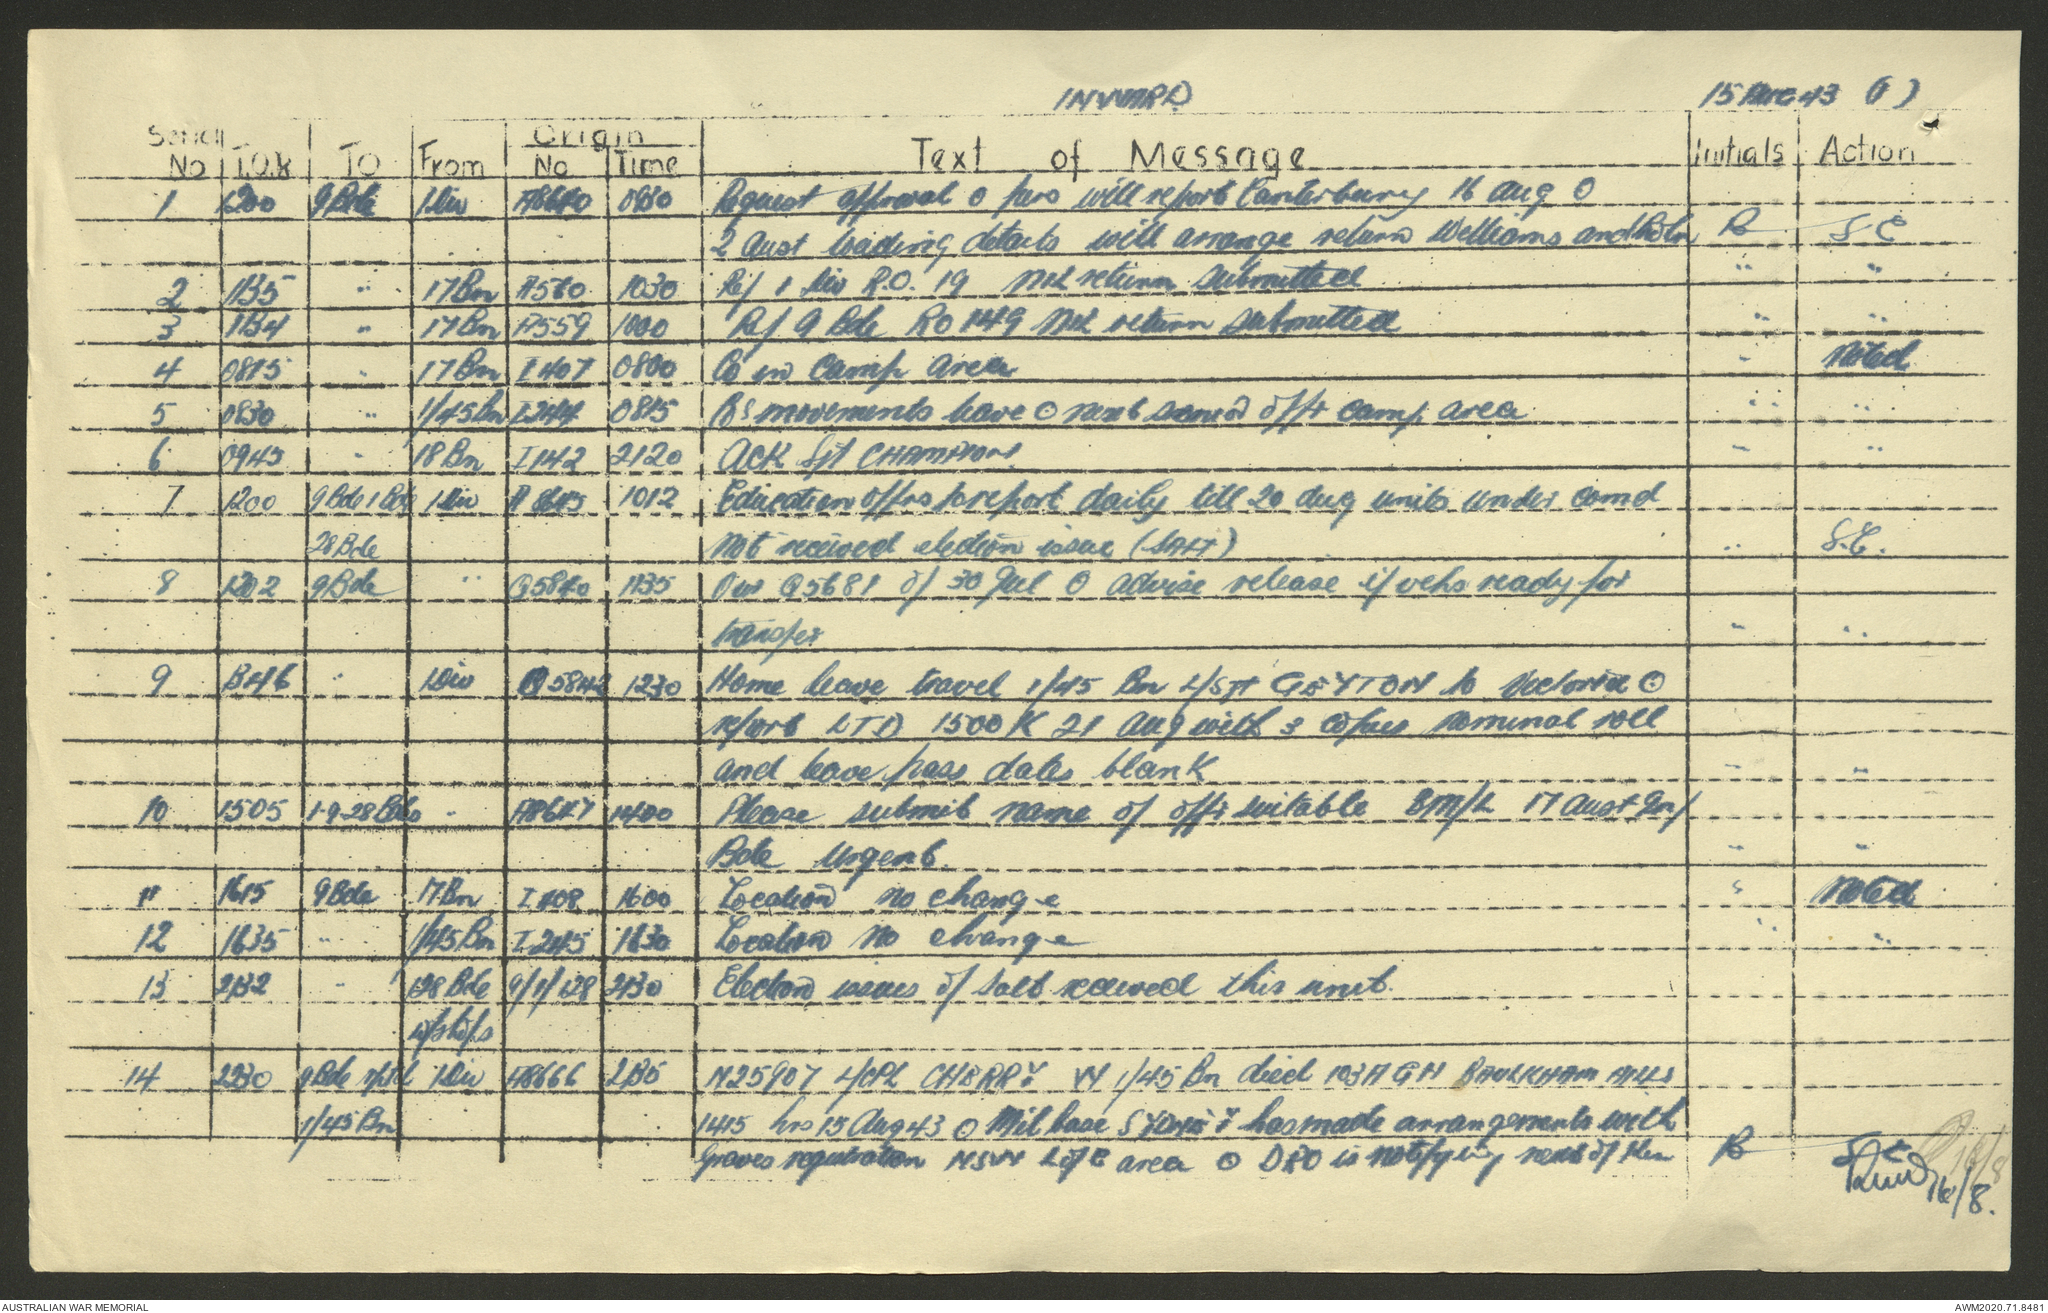 INWARD 15 AUG 43 (1)
Serial No T.O.R TO From Origin No Time Text of Message Initials Action
1 1200 9 Bde 1 Div A8640 0930 Request approval ⊙ pers will report Canterbury 16 Aug ⊙
2 Aust loading details will arrange return Williams and B S.C
2 1135 " 17 Bn A560 1030 Ref 1 Div R.O. 19 Nil return submitted " "
3 1134 " 17 Bn A559 1000 Ref 9 Bde RO 149 Nil return submitted " "
4 0815 " 17 Bn I 407 0800 Co in camp area " Noted
5 0830 " 1/45 Bn I.244 0815 movements leave ⊙ offr camp area " "
6 0945 " 18 Bn I 142 2120 ACK Sjt CHAMPION " "
7 1200 9 Bde 1 Bde 1 Div A 8645 1012 Education offrs to report daily till 20 Aug units under comd
28 Bde not received election issue (SALT) " S.C.
8 1202 9 Bde " Q5840 1135 Our Q5681 of 30 Jul ⊙ advise release if vehs ready for
transfer " "
9 1346 " 1 Div Q5842 1230 Home leave travel 1/45 Bn L/Sjt GEYTON to Victoria ⊙
report LTD 1500 K 21 Aug with 3 copies nominal roll
and leave pass dates blank " "
10 1505 1-9-28 Bdes " A8647 1400 Please submit name of offr suitable BM/L 17 Aust Inf
Bde Urgent. " "
11 1615 9 Bde 17 Bn I 408 1600 Location no change " Noted
12 1635 " 1/45 Bn I.245 1630 Location no change " "
13 2132 " 28 Bde 9/1/128 2130 Election issues of Salt received this unit.
w/shops
14 2230 9 Bde rptd 1 Div A8666 2135 N25907 L/CPL CHERRY W 1/45 Bn died 103 A G H BAULKHAM HILLS
1/45 Bn 1415 hrs 15 Aug 43 ⊙ Milbase SYDNEY has made arrangements with
Graves registration NSW L of C area ⊙ DRO is notifying next of kin B S C
16/8
16/8.
AUSTRALIAN WAR MEMORIAL AWM2020.71.8481